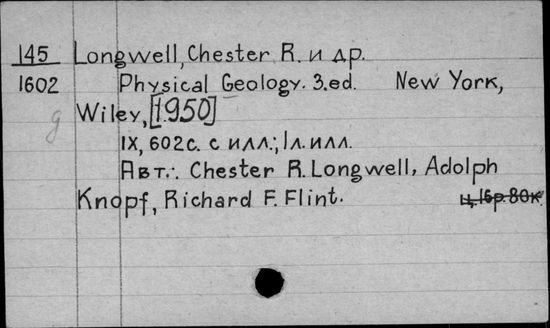 145 Longwell, Chester R. и др.
1602 Physical Geology. 3.ed. New York,
g Wiley, [1950]
IX, 602с. с илл.; 1л. илл.
Авт.: Chester R. Longwell, Adolph
Knopf, Richard F. Flint. ц, 16р. 80к.